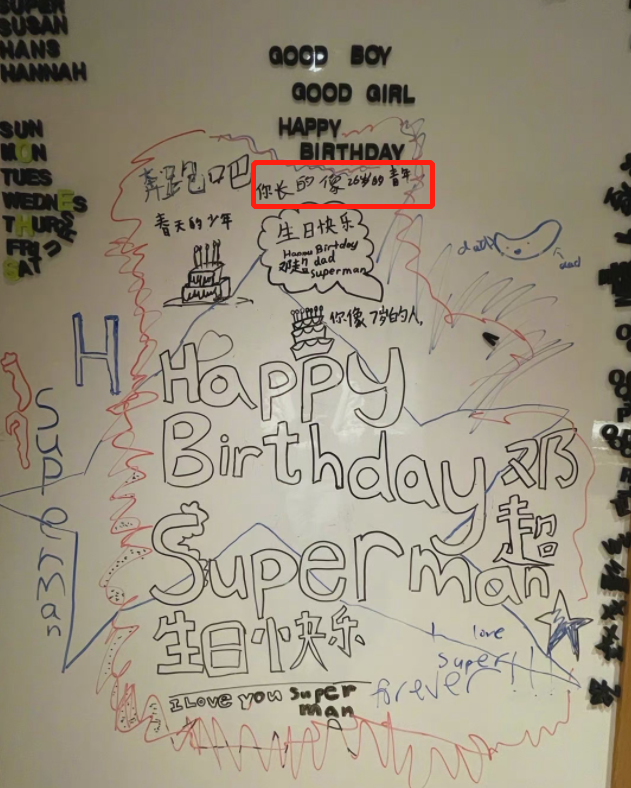 SUPER
SUSAN
HANS
HANNAH
GOOD BOY
GOOD GIRL
HAPPY
BIRTHDAY
SUN
MON
TUES
WEDNES
THURS
FRI
SAT
奔跑吧
你长的像26岁的青年
春天的少年
生日快乐
Happy Birthday
邓超 dad
superman
dad
你像7岁的人
H
Superman
Happy
Birthday 邓超
Superman
生日快乐
I love
super!!!
forever!!!
I Love you super
man